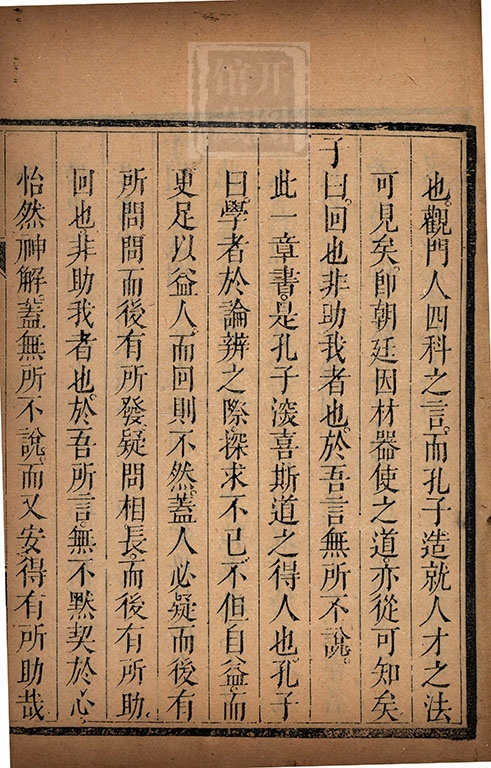 也。觀門人四科之言。而孔子造就人才之法
可見矣。卽朝廷因材器使之道。亦從可知矣
子曰。回也非助我者也。於吾言無所不說。
此一章書。是孔子深喜斯道之得人也。孔子
曰學者於論辨之際。探求不已。不但自益。而
更足以益人。而回則不然。蓋人必疑而後有
所問。問而後有所發。疑問相長。而後有所助。
回也。非助我者也。於吾所言。無不默契於心。
怡然神解。蓋無所不說。而又安得有所助哉